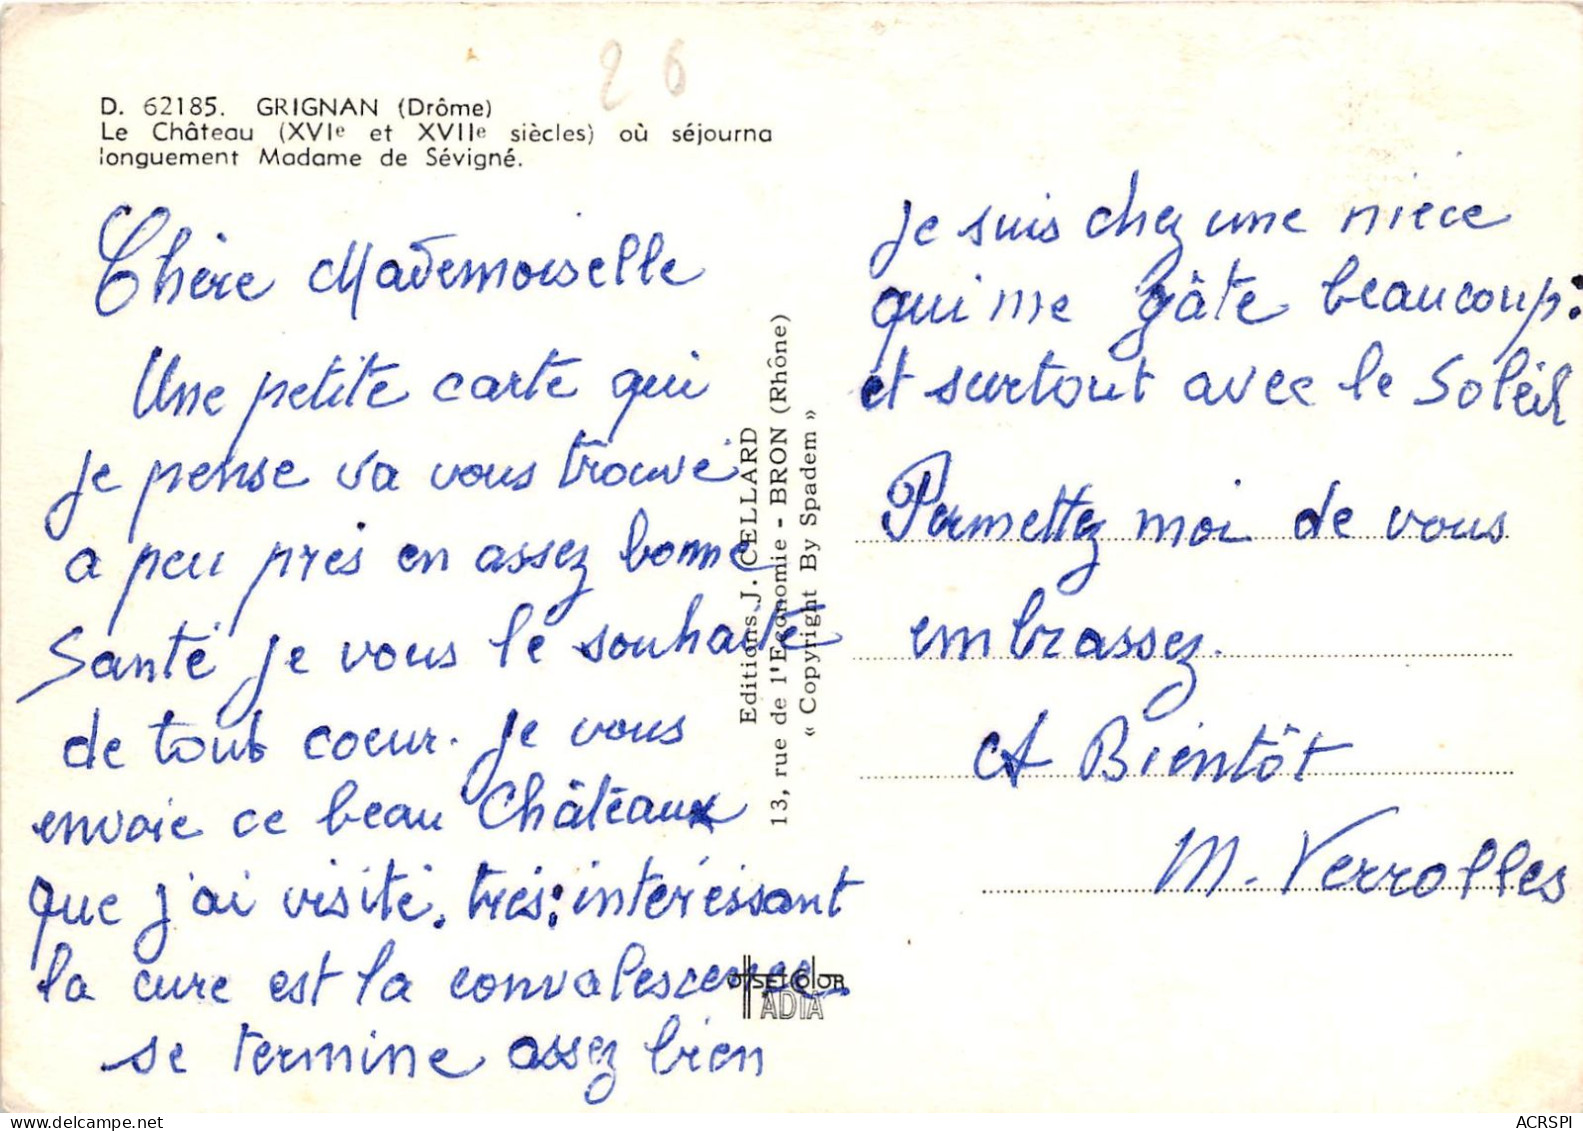 26
D. 62185. GRIGNAN (Drôme)
Le Château (XVIe et XVIIe siècles) où séjourna
longuement Madame de Sévigné.
Chère Mademoiselle
Une petite carte qui
je pense va vous trouvé
a peu près en assez bonne
Santé je vous le souhaite
de tout coeur. je vous
envoie ce beau Châteaux
que j'ai visité. très: intéressant
la cure est la convalescence
se termine assez bien
Editions J. CELLARD
13, rue de l'Economie - BRON (Rhône)
« Copyright By Spadem »
OFSETCOLOR
ADIA
je suis chez une nièce
qui me gâte beaucoup:
et surtout avec le Soleil
Permettez moi de vous
embrassez.
A Bientôt
M. Verrolles
ACRSPI